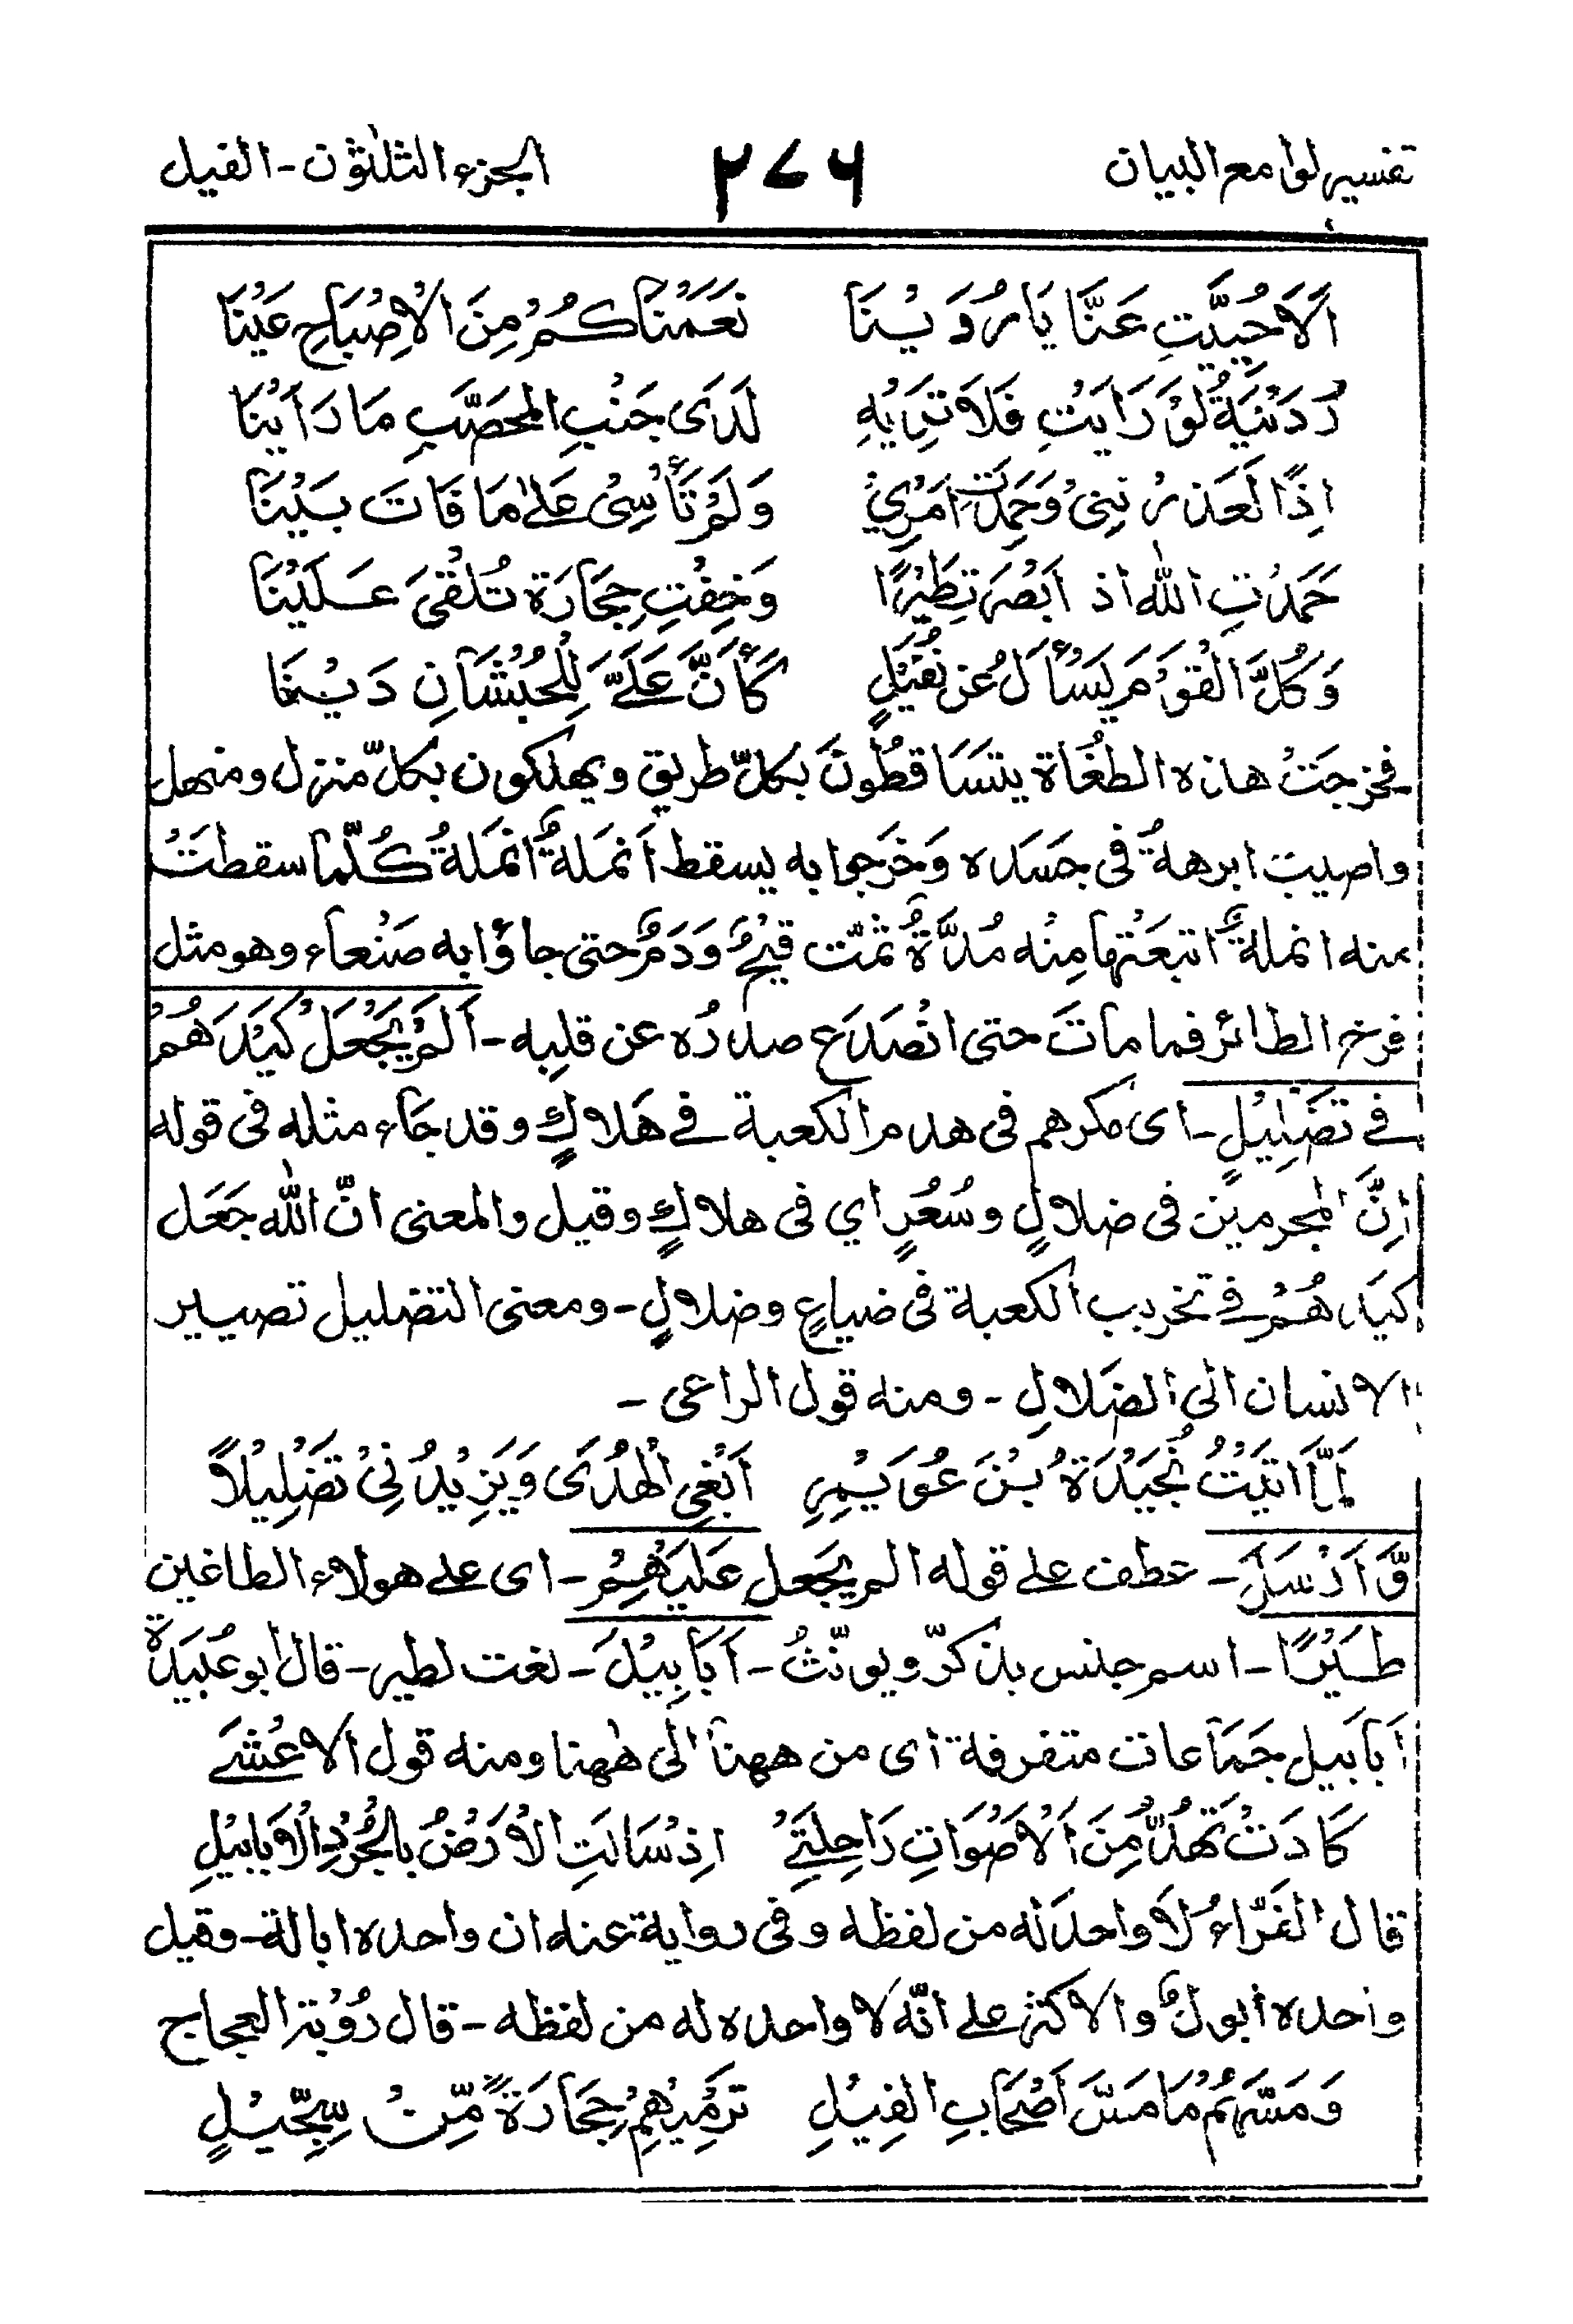 تفسير لوامع البيان ٢٧٦ الجزء الثلثون - الفيل
اَلَا حُيِّيتِ عَنَّا يَا رُدَيْنَا نَعَمْنَاكُمْ مِنَ الْاِصْبَاحِ عَيْنَا
رُدَيْنَةُ لَوْ رَاَيْتِ فَلَا تَرَيْهِ لَدَى جَنْبِ المحَصَّبِ مَا رَاَيْنَا
اِذًا لَعَذَرْتِنِىْ وَحَمِدْتِ اَمْرِيْ وَلَمْ تَأْسِىْ عَلٰى مَا فَاتَ بَيْنَا
حَمَدْتِ اللّٰه اذ اَبْصَرَتِ طَيْرًا وَخِفْتِ حِجَارَة تُلْقٰى عَلَيْنَا
وَكُلَّ الْقَوْمِ يَسْأَلُ عَنْ نُفَيْلٍ كَأَنَّ عَلَىَّ لِلْحُبْشَانِ دَيْنَا
فخرجَتْ هاذه الطغَاة يتَسَاقطُونَ بكلّ طريق ويهلكون بكلّ منزل ومنهل
واصيبَ ابرهةُ فى جسَده وَخرَجوا به يسقط اَنمَلةً اَنمَلةً كُلّما سقطتْ
منه انملةٌ اتبعَتها مِنْه مُدَّةٌ ثمّت قيْحٌ وَدَمٌ حتى جاؤا به صَنْعاء وهو مثل
فرخ الطائر فما ماتَ حتى انْصَدَع صدرُه عن قلبِه - اَلَمْ يَجْعَلْ كَيْدَهُمْ
فى تَضْلِيْلٍ - اى مكرهم فى هدم الكعبة فى هَلاكٍ وقد جَاء مثله فى قوله
اِنَّ المجرمين فى ضلالٍ وسُعُرٍ اي فى هلاكٍ وقيل والمعنى انّ اللّٰه جَعَل
كيَدهُمْ فى تخريب الكعبة فى ضياعٍ وضلالٍ - ومعنى التضليل تصيير
الانسان الى الضَلالِ - ومنه قول الراعى -
لَمَّا اتَيْتُ نُجَيْدَةُ بْنَ عُوَيْمِرِ اَبْغِى الْهُدَى وَيَزِيْدُنِىْ تَضْلِيْلًا
وَّاَرْسَلَ - عطف على قوله الم يجَعل عَلَيْهِمْ - اى على هولاء الطاغين
طَيْرًا - اسم جنس يذكرّ ويونّثُ - اَبَابِيْلَ - نعت لطير - قال ابو عُبَيدَة
اَبَابَيل جَمَاعات متفرقة اى من ههنا الٰى هٰهنا ومنه قول الاعْشَے
كَادَتْ تَهُدُّ مِنَ الْاَصْوَاتِ رَاحِلَتِےْ اِذْ سَالَتِ الْاَرْضُ بالجُرْدِ الْاَبابيْلِ
قال الفَرّاءُ لَا واحدَ له من لفظه وفى رواية عنه ان واحده ابالة - وقيل
واحده ابولٌ والاكثر على انّه لا واحده له من لفظه - قال رُؤْبة العجاج
وَمَسَّهُمْ مَا مَسَّ اَصْحَابِ الفِيْلِ تَرْمِيْهِمْ حِجَارَةً مِّنْ سِجِّيْلٍ